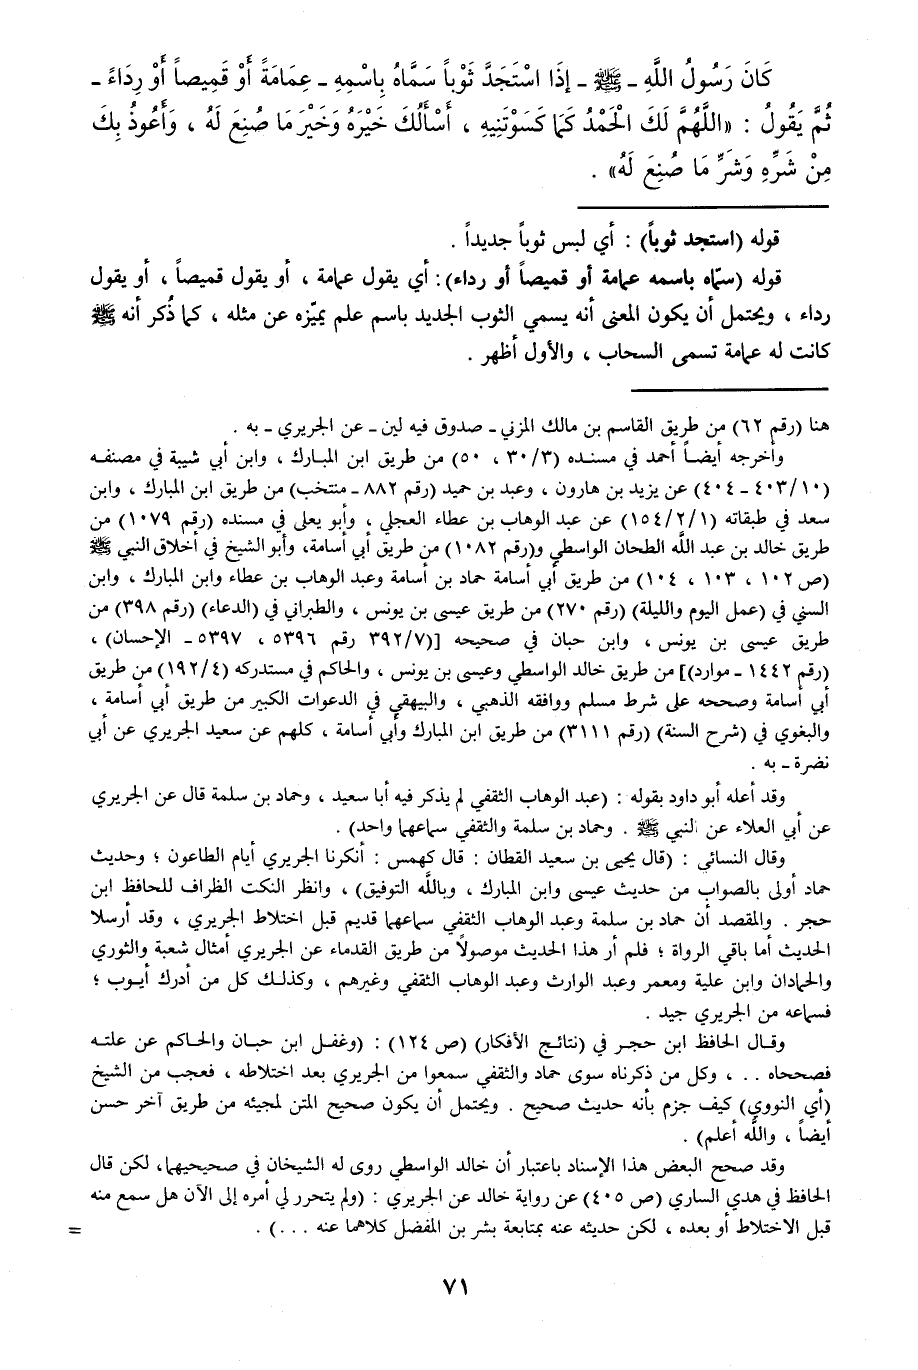 كَانَ رَسُولُ اللَّهِ ـ ﷺ ـ إِذَا اسْتَجَدَّ ثَوْباً سَمَّاهُ بِاسْمِهِ ـ عِمَامَةً أَوْ قَمِيصاً أَوْ رِدَاءً ـ
ثُمَّ يَقُولُ : «اللَّهُمَّ لَكَ الْحَمْدُ كَمَا كَسَوْتَنِيهِ ، أَسْأَلُكَ خَيْرَهُ وَخَيْرَ مَا صُنِعَ لَهُ ، وَأَعُوذُ بِكَ
مِنْ شَرِّهِ وَشَرِّ مَا صُنِعَ لَهُ» .
قوله (استجد ثوباً) : أي لبس ثوباً جديداً .
قوله (سمّاه باسمه عمامة أو قميصاً أو رداء): أي يقول عمامة ، أو يقول قميصاً ، أو يقول
رداء ، ويحتمل أن يكون المعنى أنه يسمي الثوب الجديد باسم علم يميّزه عن مثله ، كما ذُكر أنه ﷺ
كانت له عمامة تسمى السحاب ، والأول أظهر .
هنا (رقم ٦٢) من طريق القاسم بن مالك المزني ـ صدوق فيه لين ـ عن الجريري ـ به .
وأخرجه أيضاً أحمد في مسنده (٣/ ٣٠ ، ٥٠) من طريق ابن المبارك ، وابن أبي شيبة في مصنفه
(١٠/ ٤٠٣ ـ ٤٠٤) عن يزيد بن هارون ، وعبد بن حميد (رقم ٨٨٢ ـ منتخب) من طريق ابن المبارك ، وابن
سعد في طبقاته (١/ ٢/ ١٥٤) عن عبد الوهاب بن عطاء العجلي ، وأبو يعلى في مسنده (رقم ١٠٧٩) من
طريق خالد بن عبد الله الطحان الواسطي و(رقم ١٠٨٢) من طريق أبي أسامة، وأبو الشيخ في أخلاق النبي ﷺ
(ص ١٠٢ ، ١٠٣ ، ١٠٤) من طريق أبي أسامة حماد بن أسامة وعبد الوهاب بن عطاء وابن المبارك ، وابن
السني في (عمل اليوم والليلة) (رقم ٢٧٠) من طريق عيسى بن يونس ، والطبراني في (الدعاء) (رقم ٣٩٨) من
طريق عيسى بن يونس ، وابن حبان في صحيحه [(٧/ ٣٩٢ رقم ٥٣٩٦ ، ٥٣٩٧ ـ الإحسان) ،
(رقم ١٤٤٢ ـ موارد)] من طريق خالد الواسطي وعيسى بن يونس ، والحاكم في مستدركه (٤/ ١٩٢) من طريق
أبي أسامة وصححه على شرط مسلم ووافقه الذهبي ، والبيهقي في الدعوات الكبير من طريق أبي أسامة ،
والبغوي في (شرح السنة) (رقم ٣١١١) من طريق ابن المبارك وأبي أسامة ، كلهم عن سعيد الجريري عن أبي
نضرة ـ به .
وقد أعله أبو داود بقوله : (عبد الوهاب الثقفي لم يذكر فيه أبا سعيد ، وحماد بن سلمة قال عن الجريري
عن أبي العلاء عن النبي ﷺ . وحماد بن سلمة والثقفي سماعهما واحد) .
وقال النسائي : (قال يحيى بن سعيد القطان : قال كهمس : أنكرنا الجريري أيام الطاعون ؛ وحديث
حماد أولى بالصواب من حديث عيسى وابن المبارك ، وبالله التوفيق) ، وانظر النكت الظراف للحافظ ابن
حجر . والمقصد أن حماد بن سلمة وعبد الوهاب الثقفي سماعهما قديم قبل اختلاط الجريري ، وقد أرسلا
الحديث أما باقي الرواة ؛ فلم أر هذا الحديث موصولاً من طريق القدماء عن الجريري أمثال شعبة والثوري
والحمادان وابن علية ومعمر وعبد الوارث وعبد الوهاب الثقفي وغيرهم ، وكذلك كل من أدرك أيوب ؛
فسماعه من الجريري جيد .
وقال الحافظ ابن حجر في (نتائج الأفكار) (ص ١٢٤) : (وغفل ابن حبان والحاكم عن علته
فصححاه . . ، وكل من ذكرناه سوى حماد والثقفي سمعوا من الجريري بعد اختلاطه ، فعجب من الشيخ
(أي النووي) كيف جزم بأنه حديث صحيح . ويحتمل أن يكون صحيح المتن لمجيئه من طريق آخر حسن
أيضاً ، والله أعلم) .
وقد صحح البعض هذا الإسناد باعتبار أن خالد الواسطي روى له الشيخان في صحيحيهما، لكن قال
الحافظ في هدي الساري (ص ٤٠٥) عن رواية خالد عن الجريري : (ولم يتحرر لي أمره إلى الآن هل سمع منه
قبل الاختلاط أو بعده ، لكن حديثه عنه بمتابعة بشر بن المفضل كلاهما عنه . . .) . =
٧١